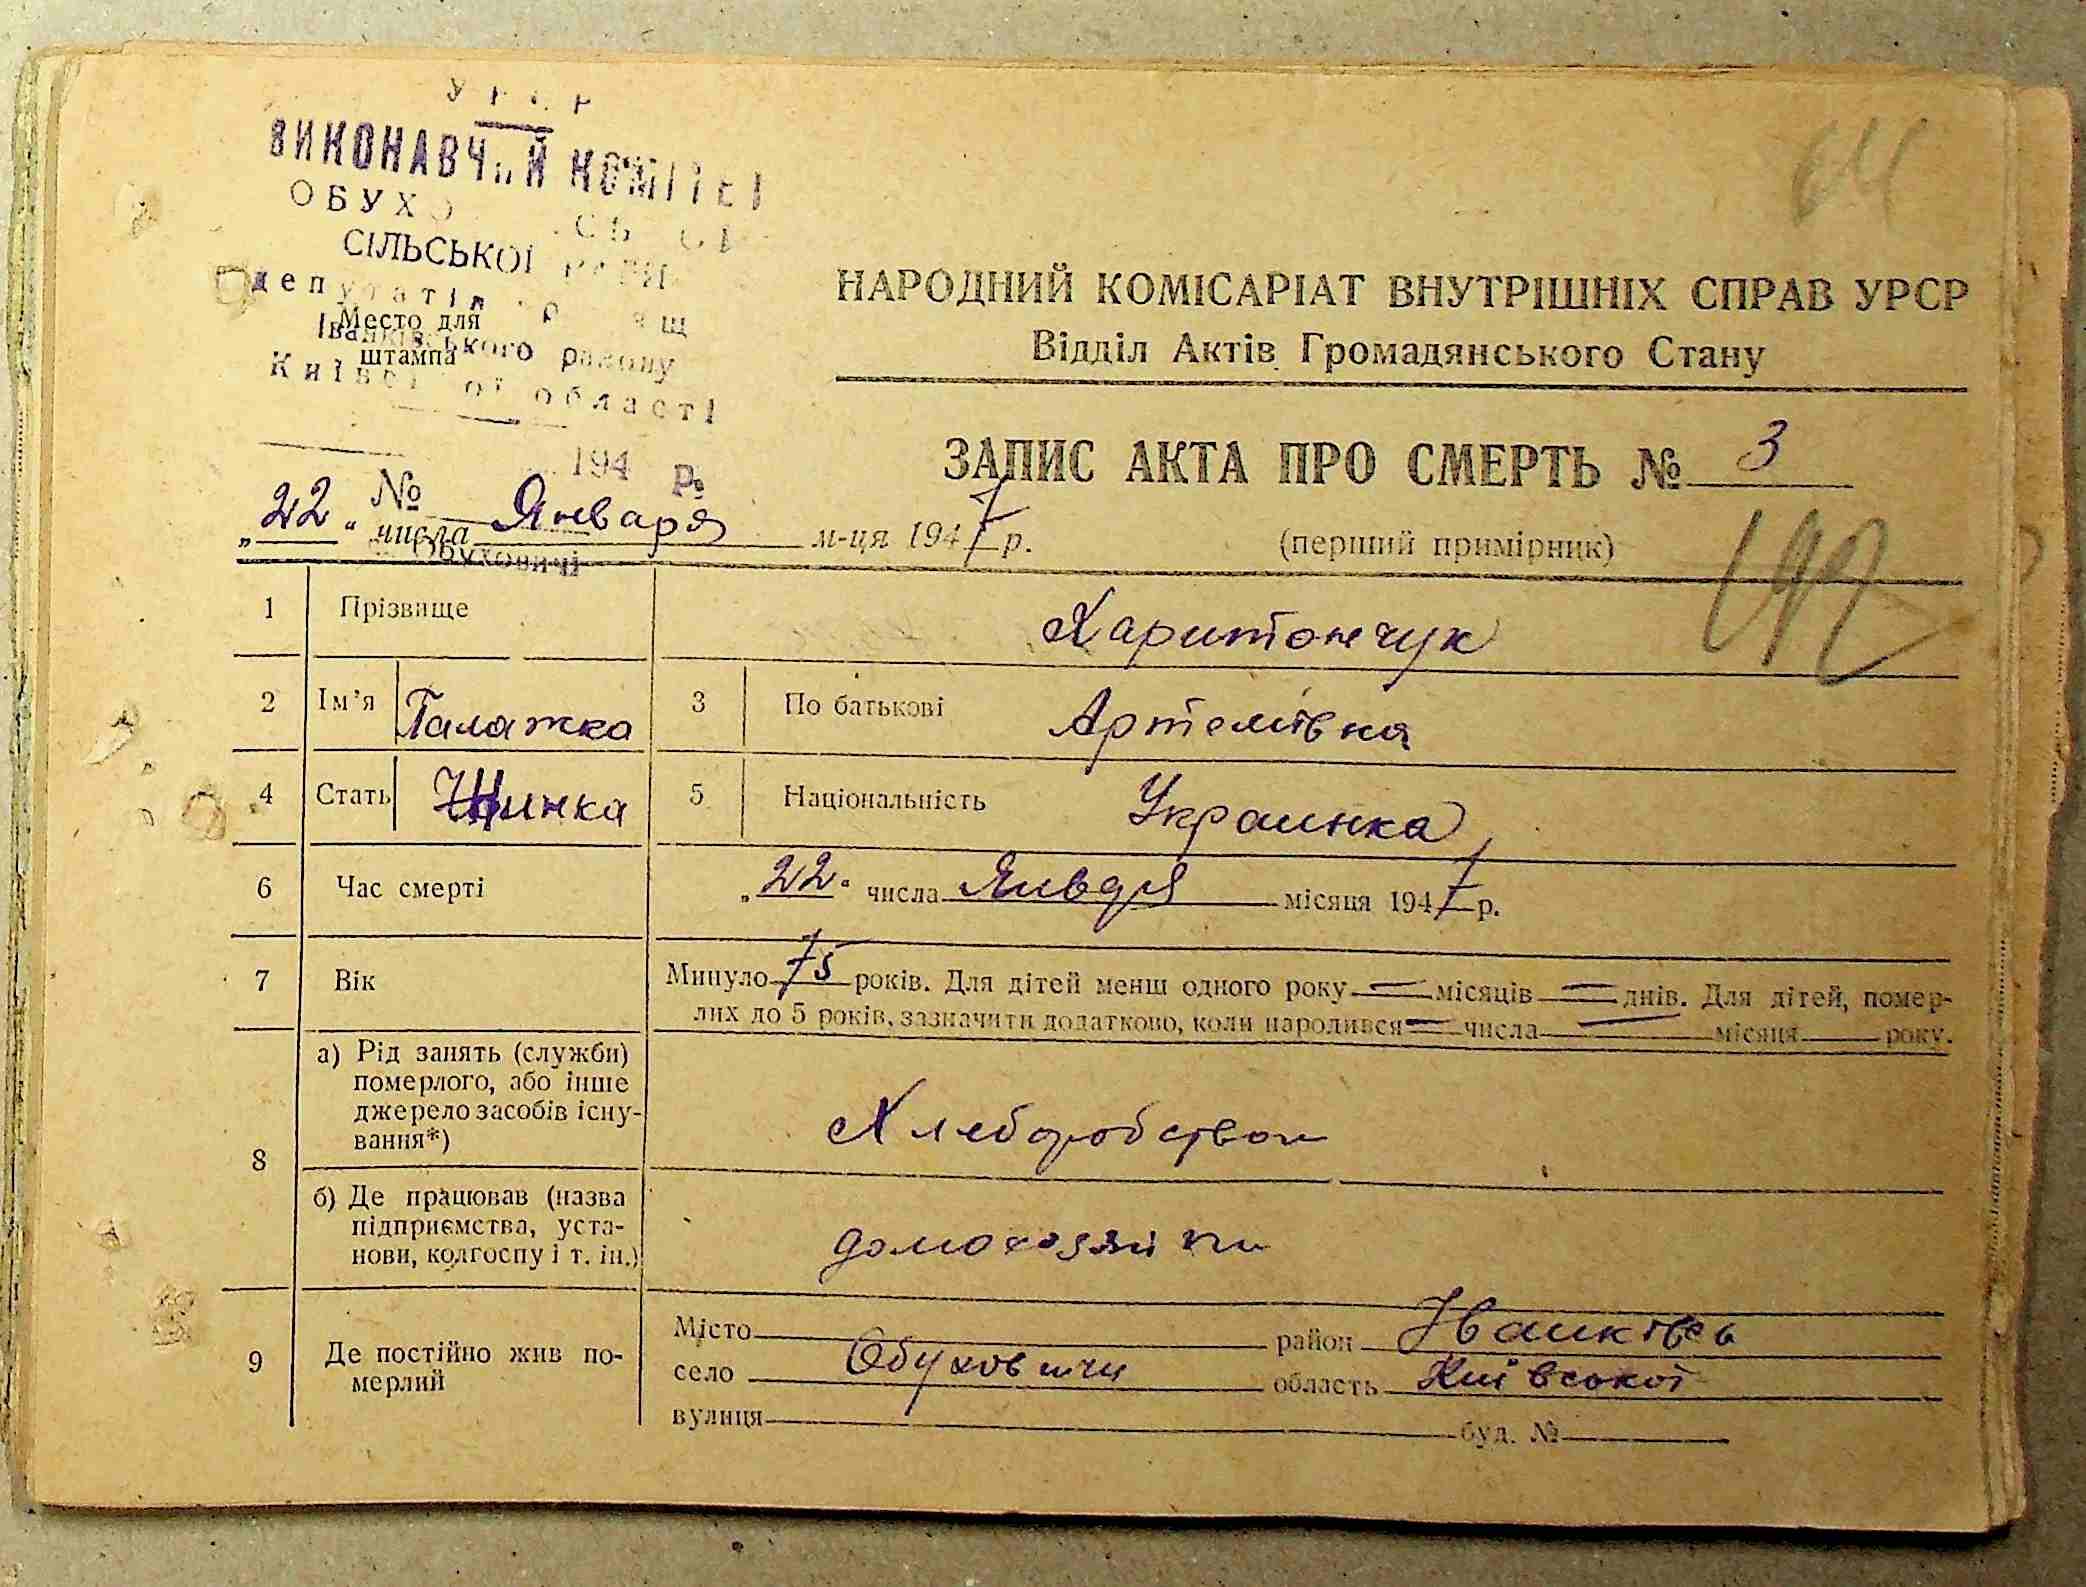 УРСР
ВИКОНАВЧИЙ КОМІТЕТ
ОБУХО
СІЛЬСЬКОЇ РАДИ
депутатів
Место для
Іванківського району
штампа
Київської області
194 р.
№
„22“ числа Января м-ця 1947 р.
Обуховичі
64
НАРОДНИЙ КОМІСАРІАТ ВНУТРІШНІХ СПРАВ УРСР
Відділ Актів Громадянського Стану
ЗАПИС АКТА ПРО СМЕРТЬ № 3
(перший примірник)
1 Прізвище Харитончук
2 Ім’я Галажка 3 По батькові Артемівна
4 Стать Жинка 5 Національність Украинка
6 Час смерті „22“ числа Января місяця 1947 р.
7 Вік Минуло 75 років. Для дітей менш одного року — місяців — днів. Для дітей, помер-
лих до 5 років, зазначити додатково, коли народився — числа — місяця року.
8 а) Рід занять (служби)
померлого, або інше
джерело засобів існу-
вання*)
Хлеборобством
б) Де працював (назва
підприємства, уста-
нови, колгоспу і т. ін.)
домохозяйки
9 Де постійно жив по-
мерлий
Місто район Иванковсь
село Обуховичи область Київської
вулиця буд. №